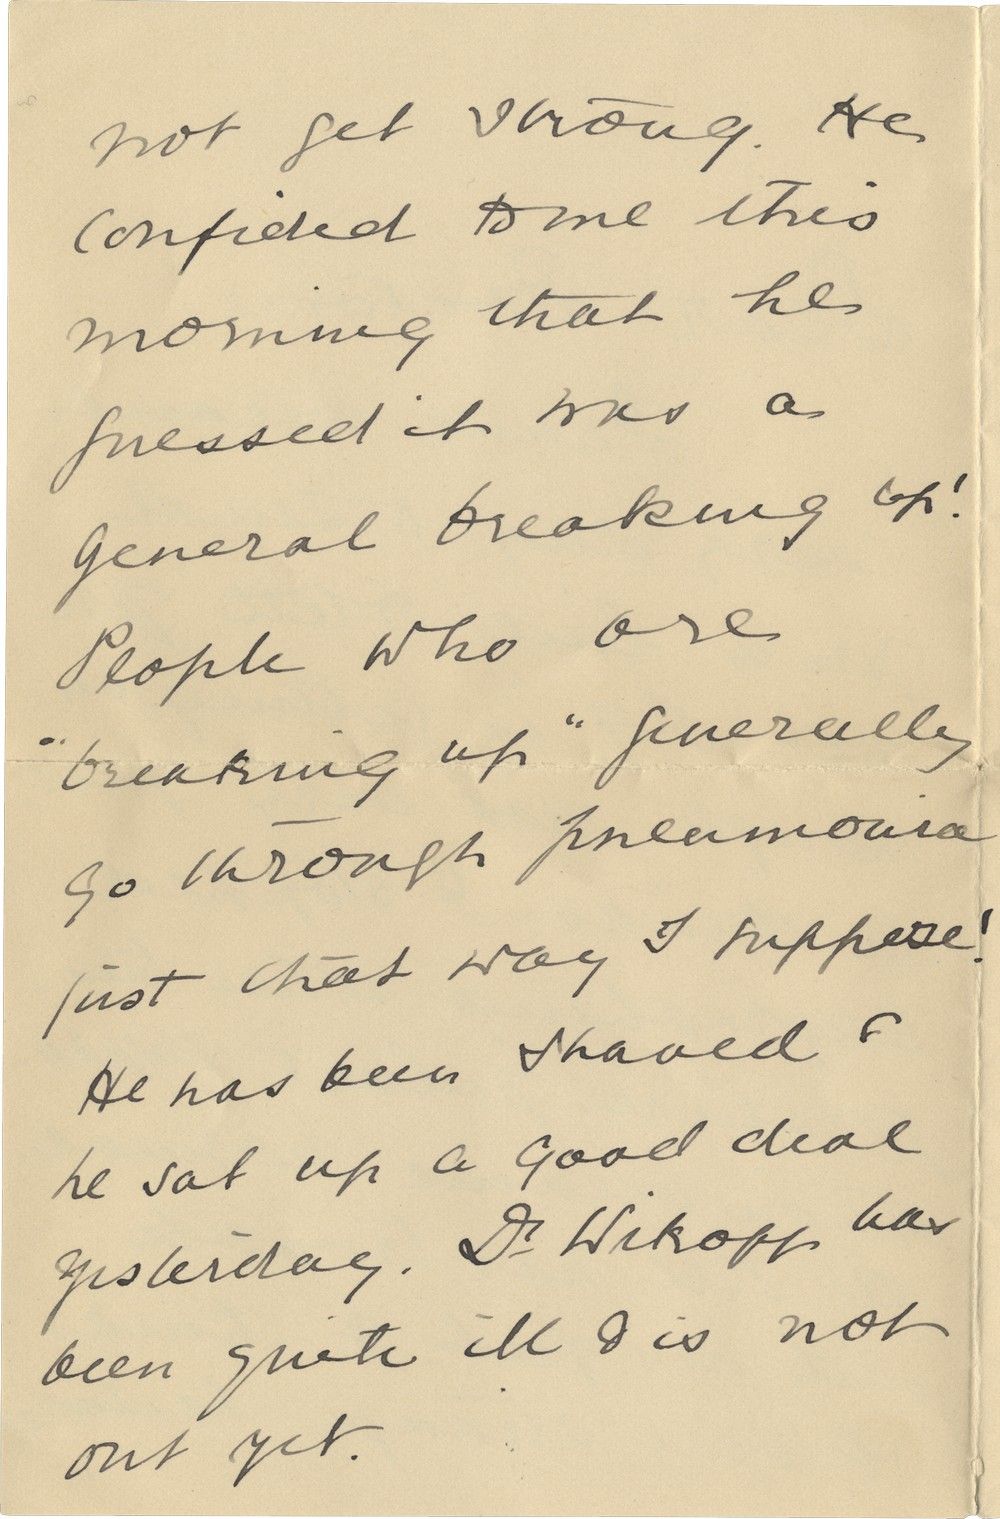 not get strong. He
confided to me this
morning that he
guessed it was a
general breaking up!
People who are
"breaking up" generally
go through pneumonia
just that way I suppose!
He has been shaved &
he sat up a good deal
yesterday. Dr Wikoff has
been quite ill & is not
out yet.